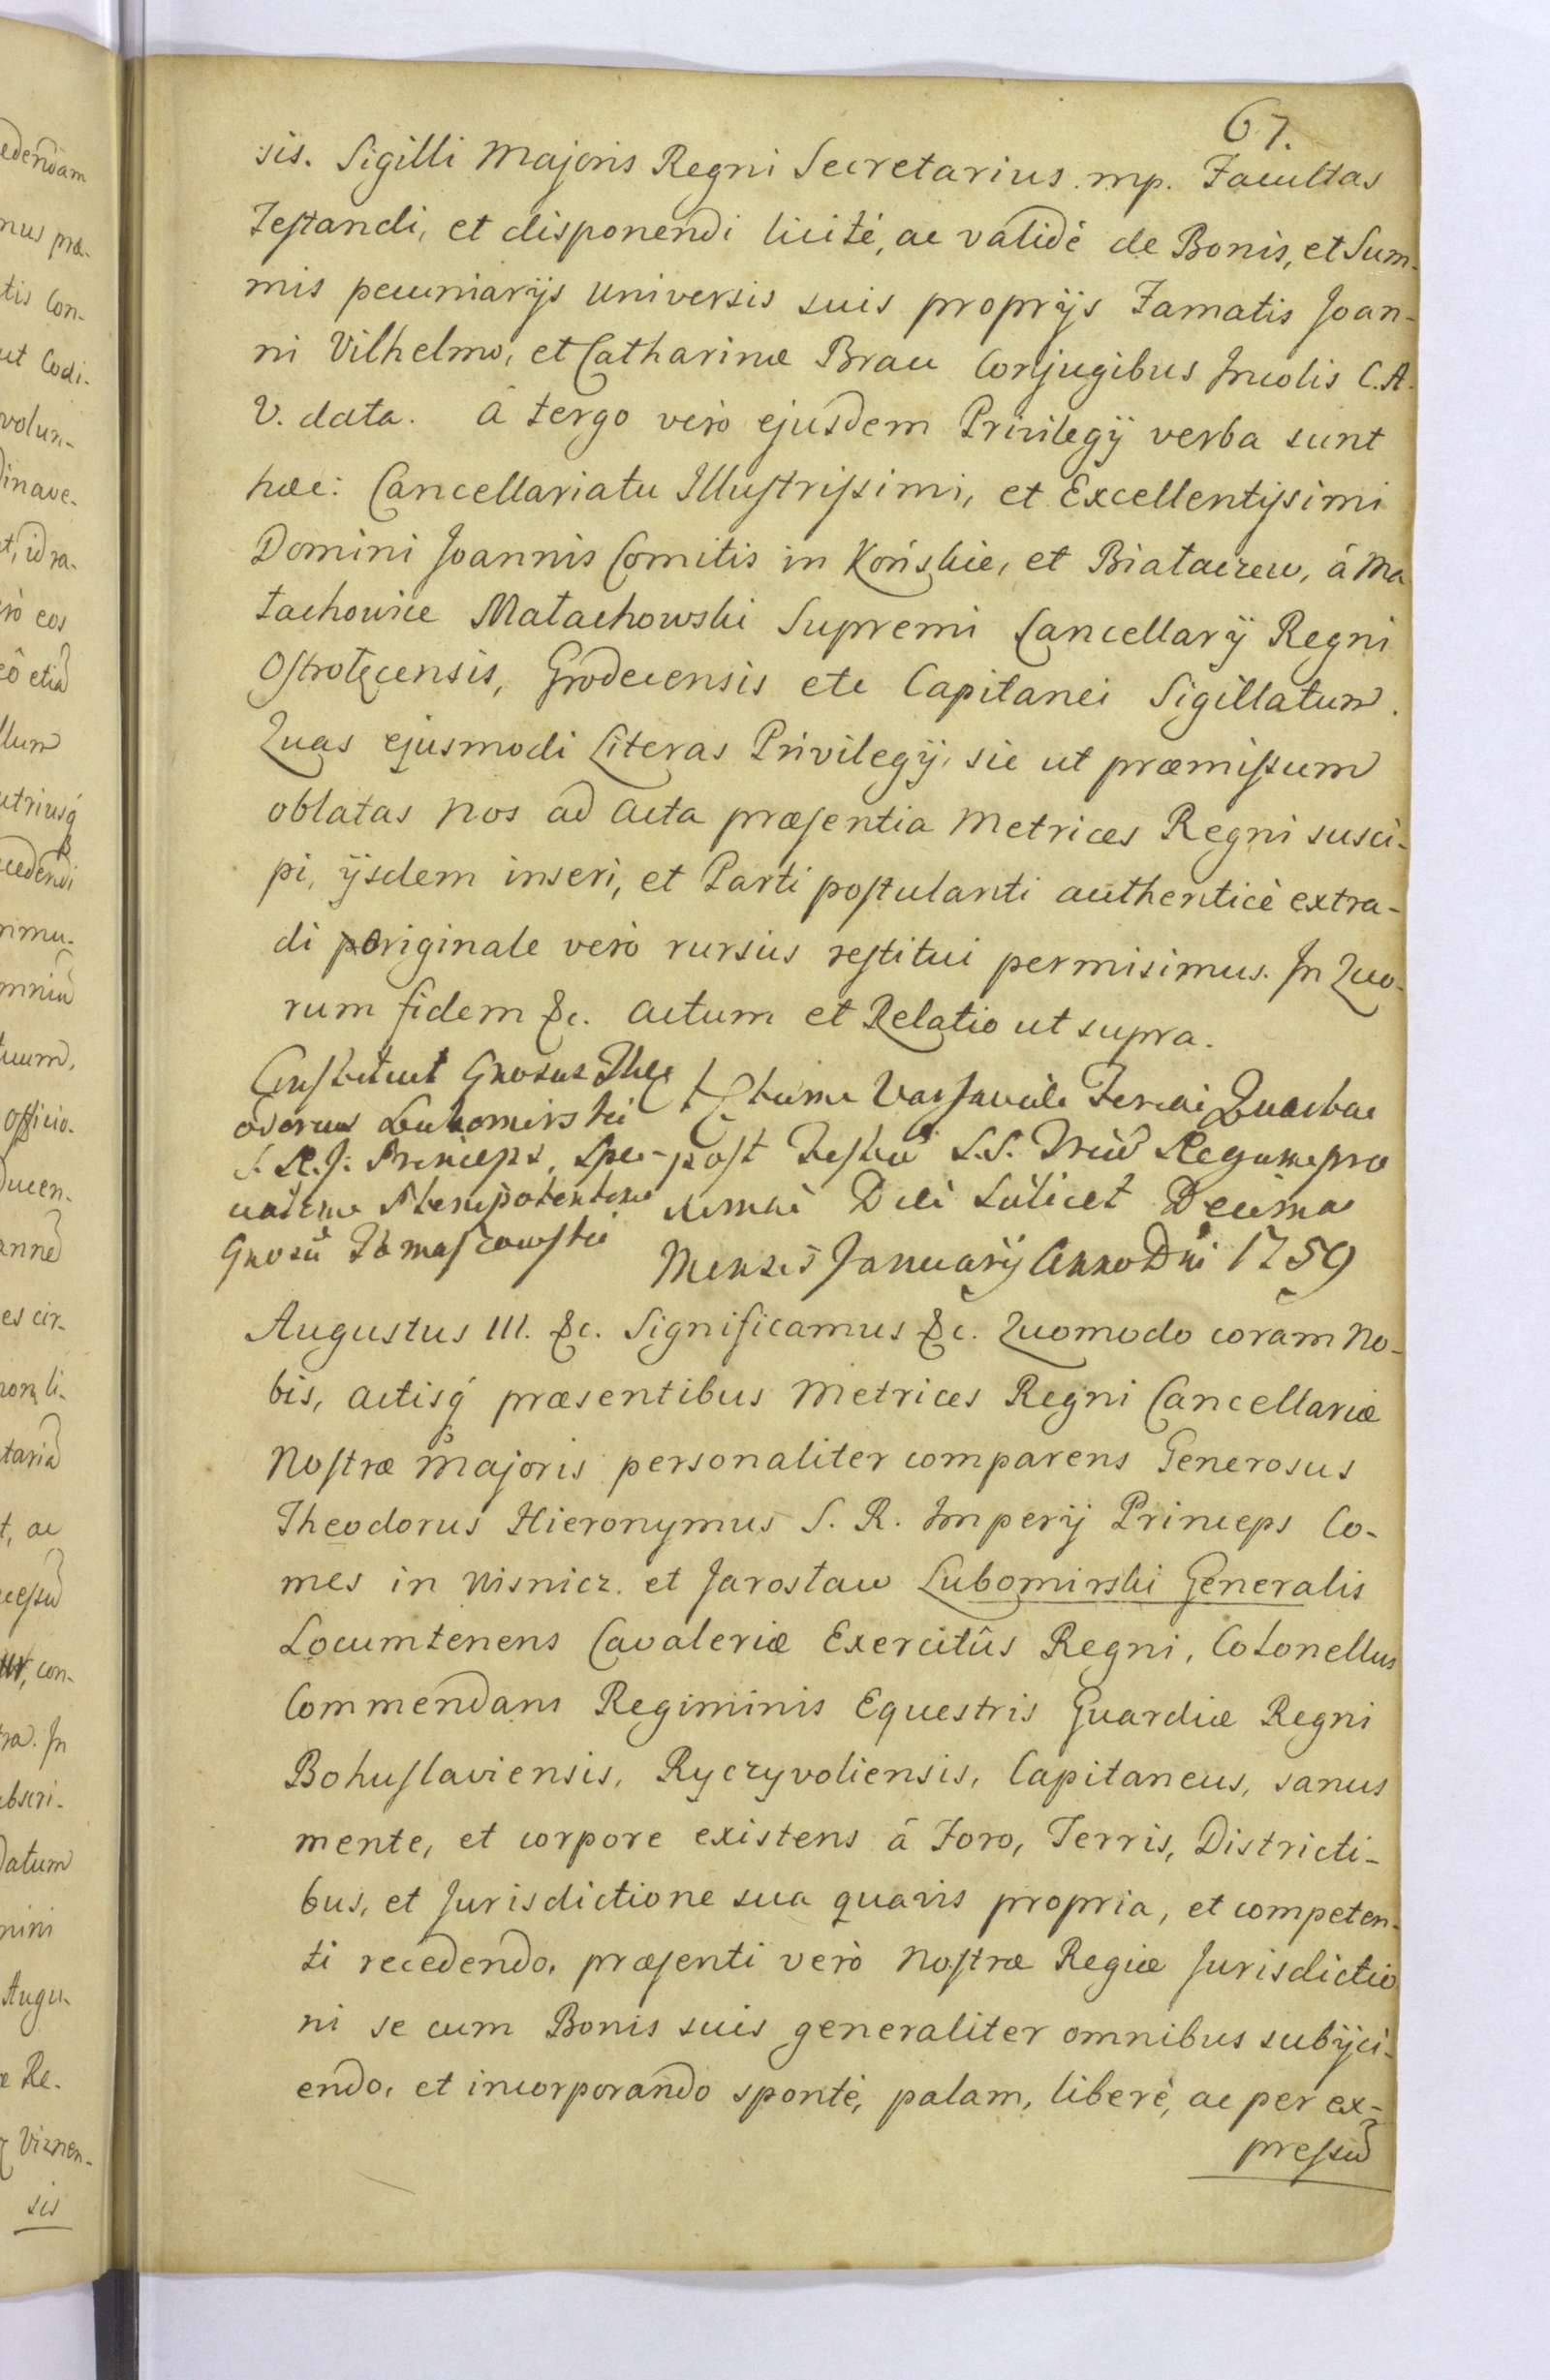 67.
sis. Sigilli Majoris Regni Secretarius mp. Facultas
Testandi, et disponendi licitè, ac validè de Bonis, et Sum-
mis pecuniarijs universis suis proprijs Famatis Joan-
ni Vilhelmo, et Catharinæ Brau Conjugibus Incolis C. A.
V. data. à tergo verò ejusdem Privilegij verba sunt
hæc: Cancellariatu Illustrissimi, et Excellentissimi
Domini Joannis Comitis in Końskie, et Białaczew, à Ma
łachowice Małachowski Supremi Cancellarij Regni
Ostrołęcensis, Grodecensis etc Capitanei Sigillatum.
Quas ejusmodi Literas Privilegij, sic ut præmissum
oblatas nos ad acta præsentia Metrices Regni susci-
pi, ijsdem inseri, et Parti postulanti authenticè extra-
di originale verò rursus restitui permisimus. In Quo-
rum fidem &c. actum et Relatio ut supra.
Constituit Gnosus The
odorus Lubomirski
S. R. J. Princeps, Spe-
cialem Plenipotentem
Gnosũ Tomaszowski
Actum Varsaviæ Feria Quarta
post Festũ S.S. Triũ Regum pro
xima Die Scilicet Decima
Mensis Januarij Anno Dni 1759
Augustus III. &c. Significamus &c. Quomodo coram no-
bis, actisq́ præsentibus Metrices Regni Cancellariæ
Nostræ Majoris personaliter comparens Generosus
Theodorus Hieronymus S. R. Imperij Princeps Co-
mes in Wisnicz. et Jarosław Lubomirski Generalis
Locumtenens Cavaleriæ Exercitûs Regni, Colonellus
Commendans Regiminis Equestris Guardiæ Regni
Bohuslaviensis, Ryczyvoliensis, Capitaneus, sanus
mente, et corpore existens à Foro, Terris, Districti-
bus, et Jurisdictione sua quavis propria, et competen-
ti recedendo, præsenti verò Nostræ Regiæ Jurisdictio
ni se cum Bonis suis generaliter omnibus subijci-
endo, et incorporando spontè, palam, liberè, ac per ex-
pressũ